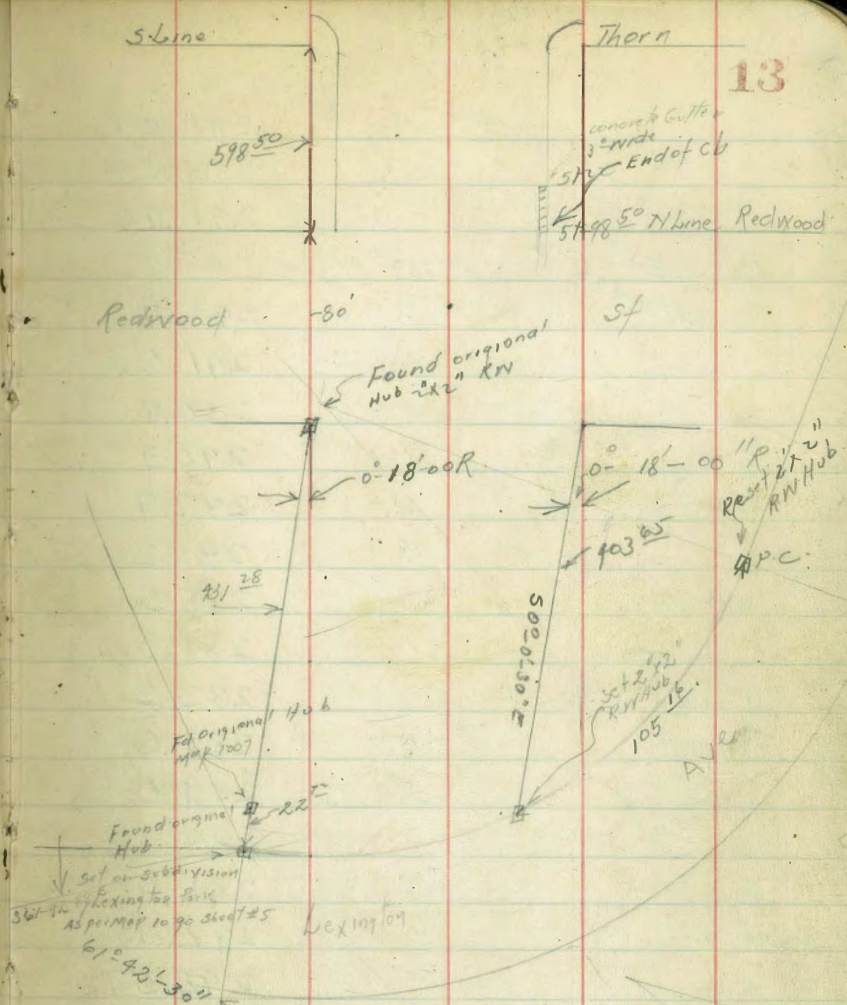 S. Line
Thorn
13
598 50
concrete Gutter
3' wide
End of Cb
5+98 50 N Line Redwood
Redwood -80' St
Found origional
Hub 2"x2" RW
0°-18'-00 R
0°- 18'- 00" R
Reset 2"x2"
RW Hub
P.C.
431 28
403 65
S00°-0'-30"E
Set 2"x2"
RW Hub
105 16
Ave
Fd Origional Hub
Map 1007
22
Found original
Hub
Set on subdivision
Lexington Park
As per Map 1090 Sheet #5
Lexington
61°-42'-30"